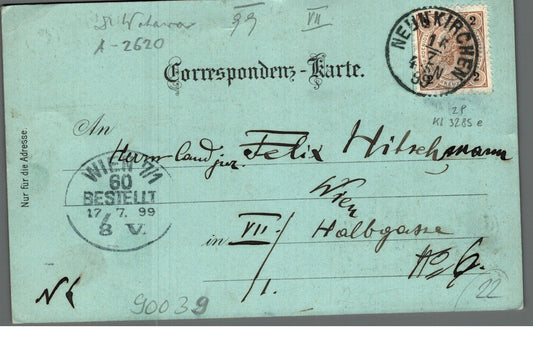 99 VII
A-2620
NEUNKIRCHEN
2
2
Correspondenz-Karte.
ZP
Kl 3285 e
Nur für die Adresse.
An
Herrn cand jur. Felix Hitschmann
WIEN 7/1
60
BESTELLT
17.7.99
8 V.
Wien
in VII/1. Halbgasse
No 6.
90039
22